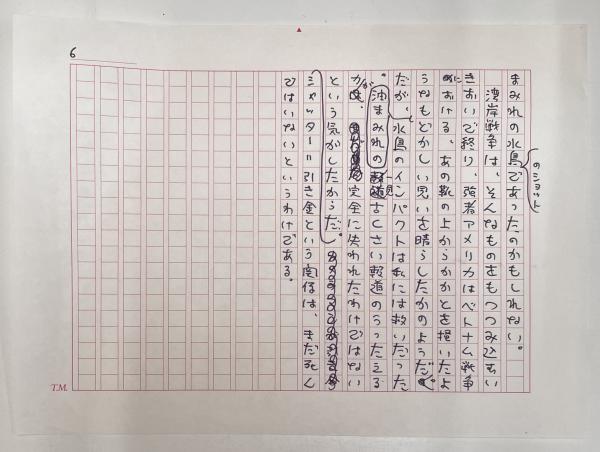 6
まみれの水鳥であったのかもしれない。
のショット
湾岸戦争は、そんなものをもつつみ込むい
きおいで終り、強者アメリカはベトナム戦争
における、あの靴の上からかかとを掻いたよ
うなもどかしい思いを晴らしたかのようだ
だが、水鳥のインパクトは私には救いだった
。油まみれの 一見 古くさい報道のうったえる
力が、完全に失われたわけではない
という気がしたからだ。
シャッター＝引き金という関係は、まだ死ん
ではいないというわけである。
T.M.